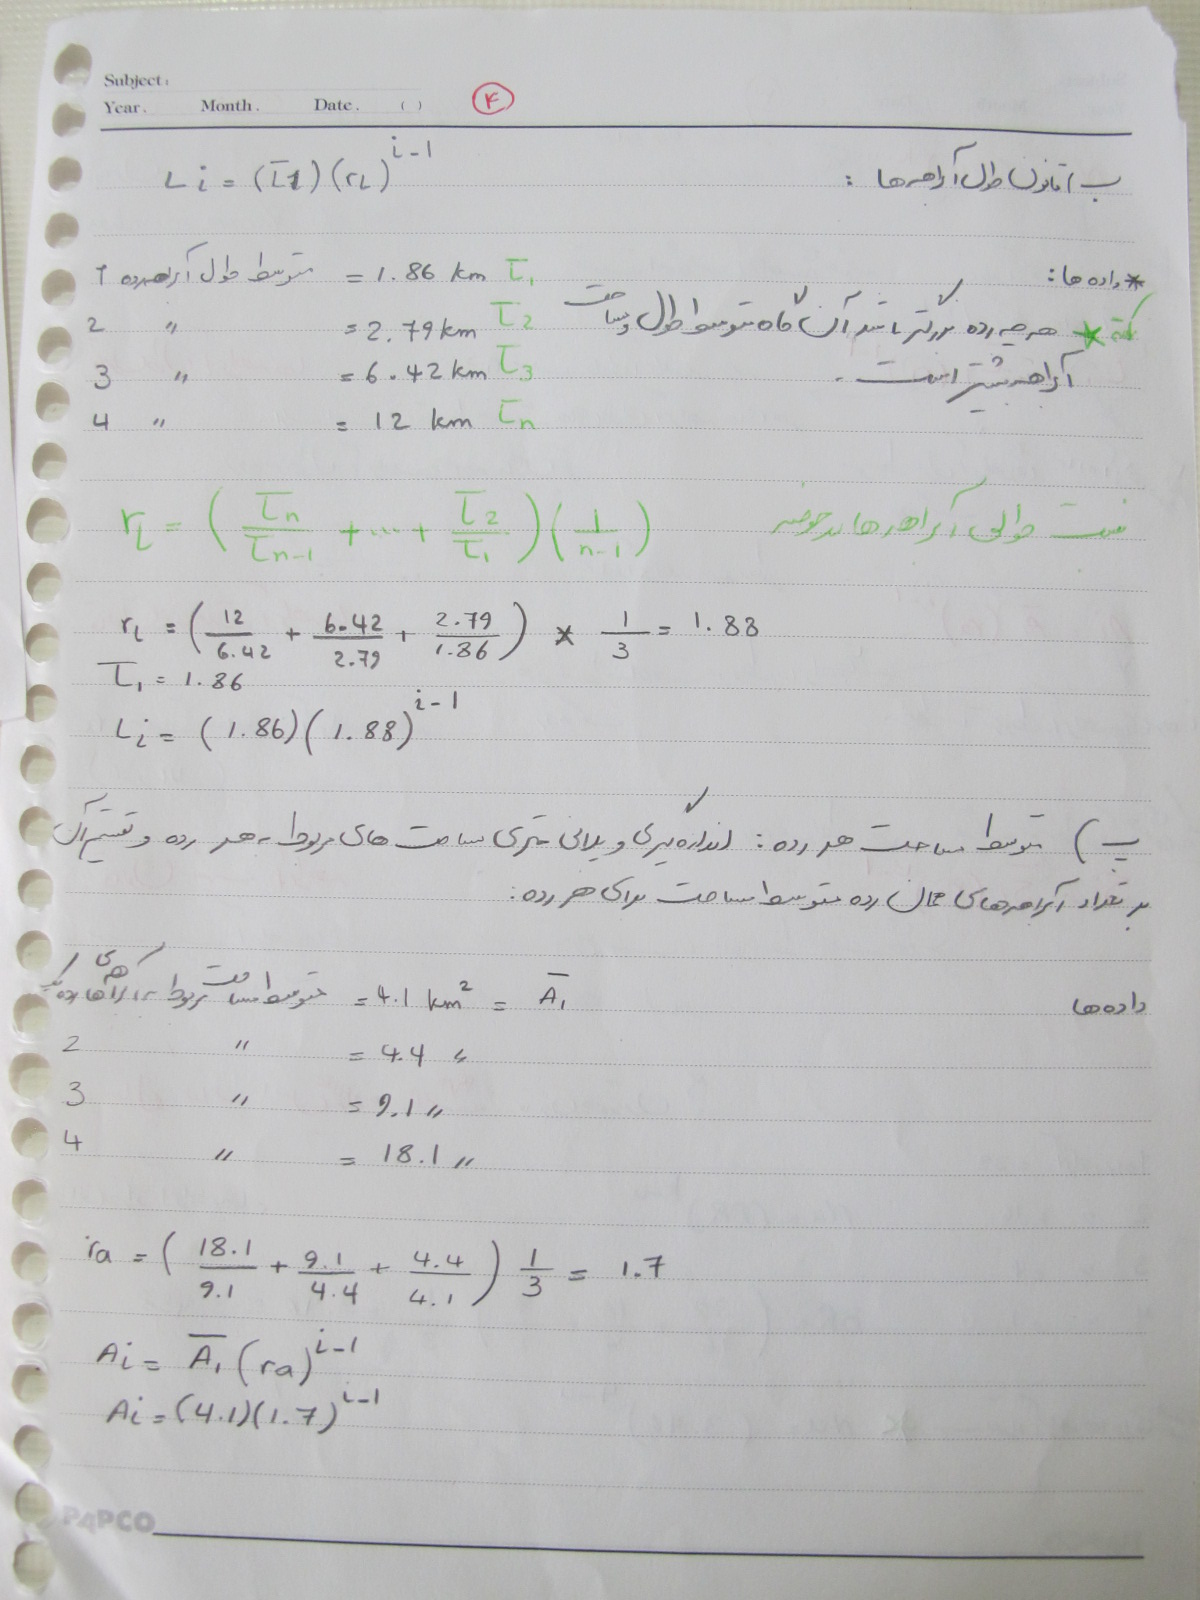 Subject:
Year. Month. Date. ( ) ۴
ب) قانون طول آبراهه‌ها : Li = (L̄1) (rL)^i-1
* داده ها:
متوسط طول آبراهه رده 1 = 1.86 km L̄1
نکته * هر چه رده بزرگتر باشد آن گاه متوسط طول و مساحت
2 〃 = 2.79 km L̄2
آبراهه بیشتر است .
3 〃 = 6.42 km L̄3
4 〃 = 12 km L̄n
نسبت طولی آبراهه ها در حوضه
rL = (L̄n/L̄n-1 + ... + L̄2/L̄1) (1/n-1)
rL = (12/6.42 + 6.42/2.79 + 2.79/1.86) * 1/3 = 1.88
L̄1 = 1.86
Li = (1.86) (1.88)^i-1
پ) متوسط مساحت هر رده : اندازه گیری و پلانی متری مساحت های مربوط به هر رده و تقسیم آن
بر تعداد آبراهه‌های همان رده متوسط مساحت برای هر رده :
داده ها
متوسط مساحت مربوط به آبراهه های رده یک = 4.1 km² = Ā1
2 〃 = 4.4 〃
3 〃 = 9.1 〃
4 〃 = 18.1 〃
ra = (18.1/9.1 + 9.1/4.4 + 4.4/4.1) 1/3 = 1.7
Ai = Ā1 (ra)^i-1
Ai = (4.1)(1.7)^i-1
PAPCO